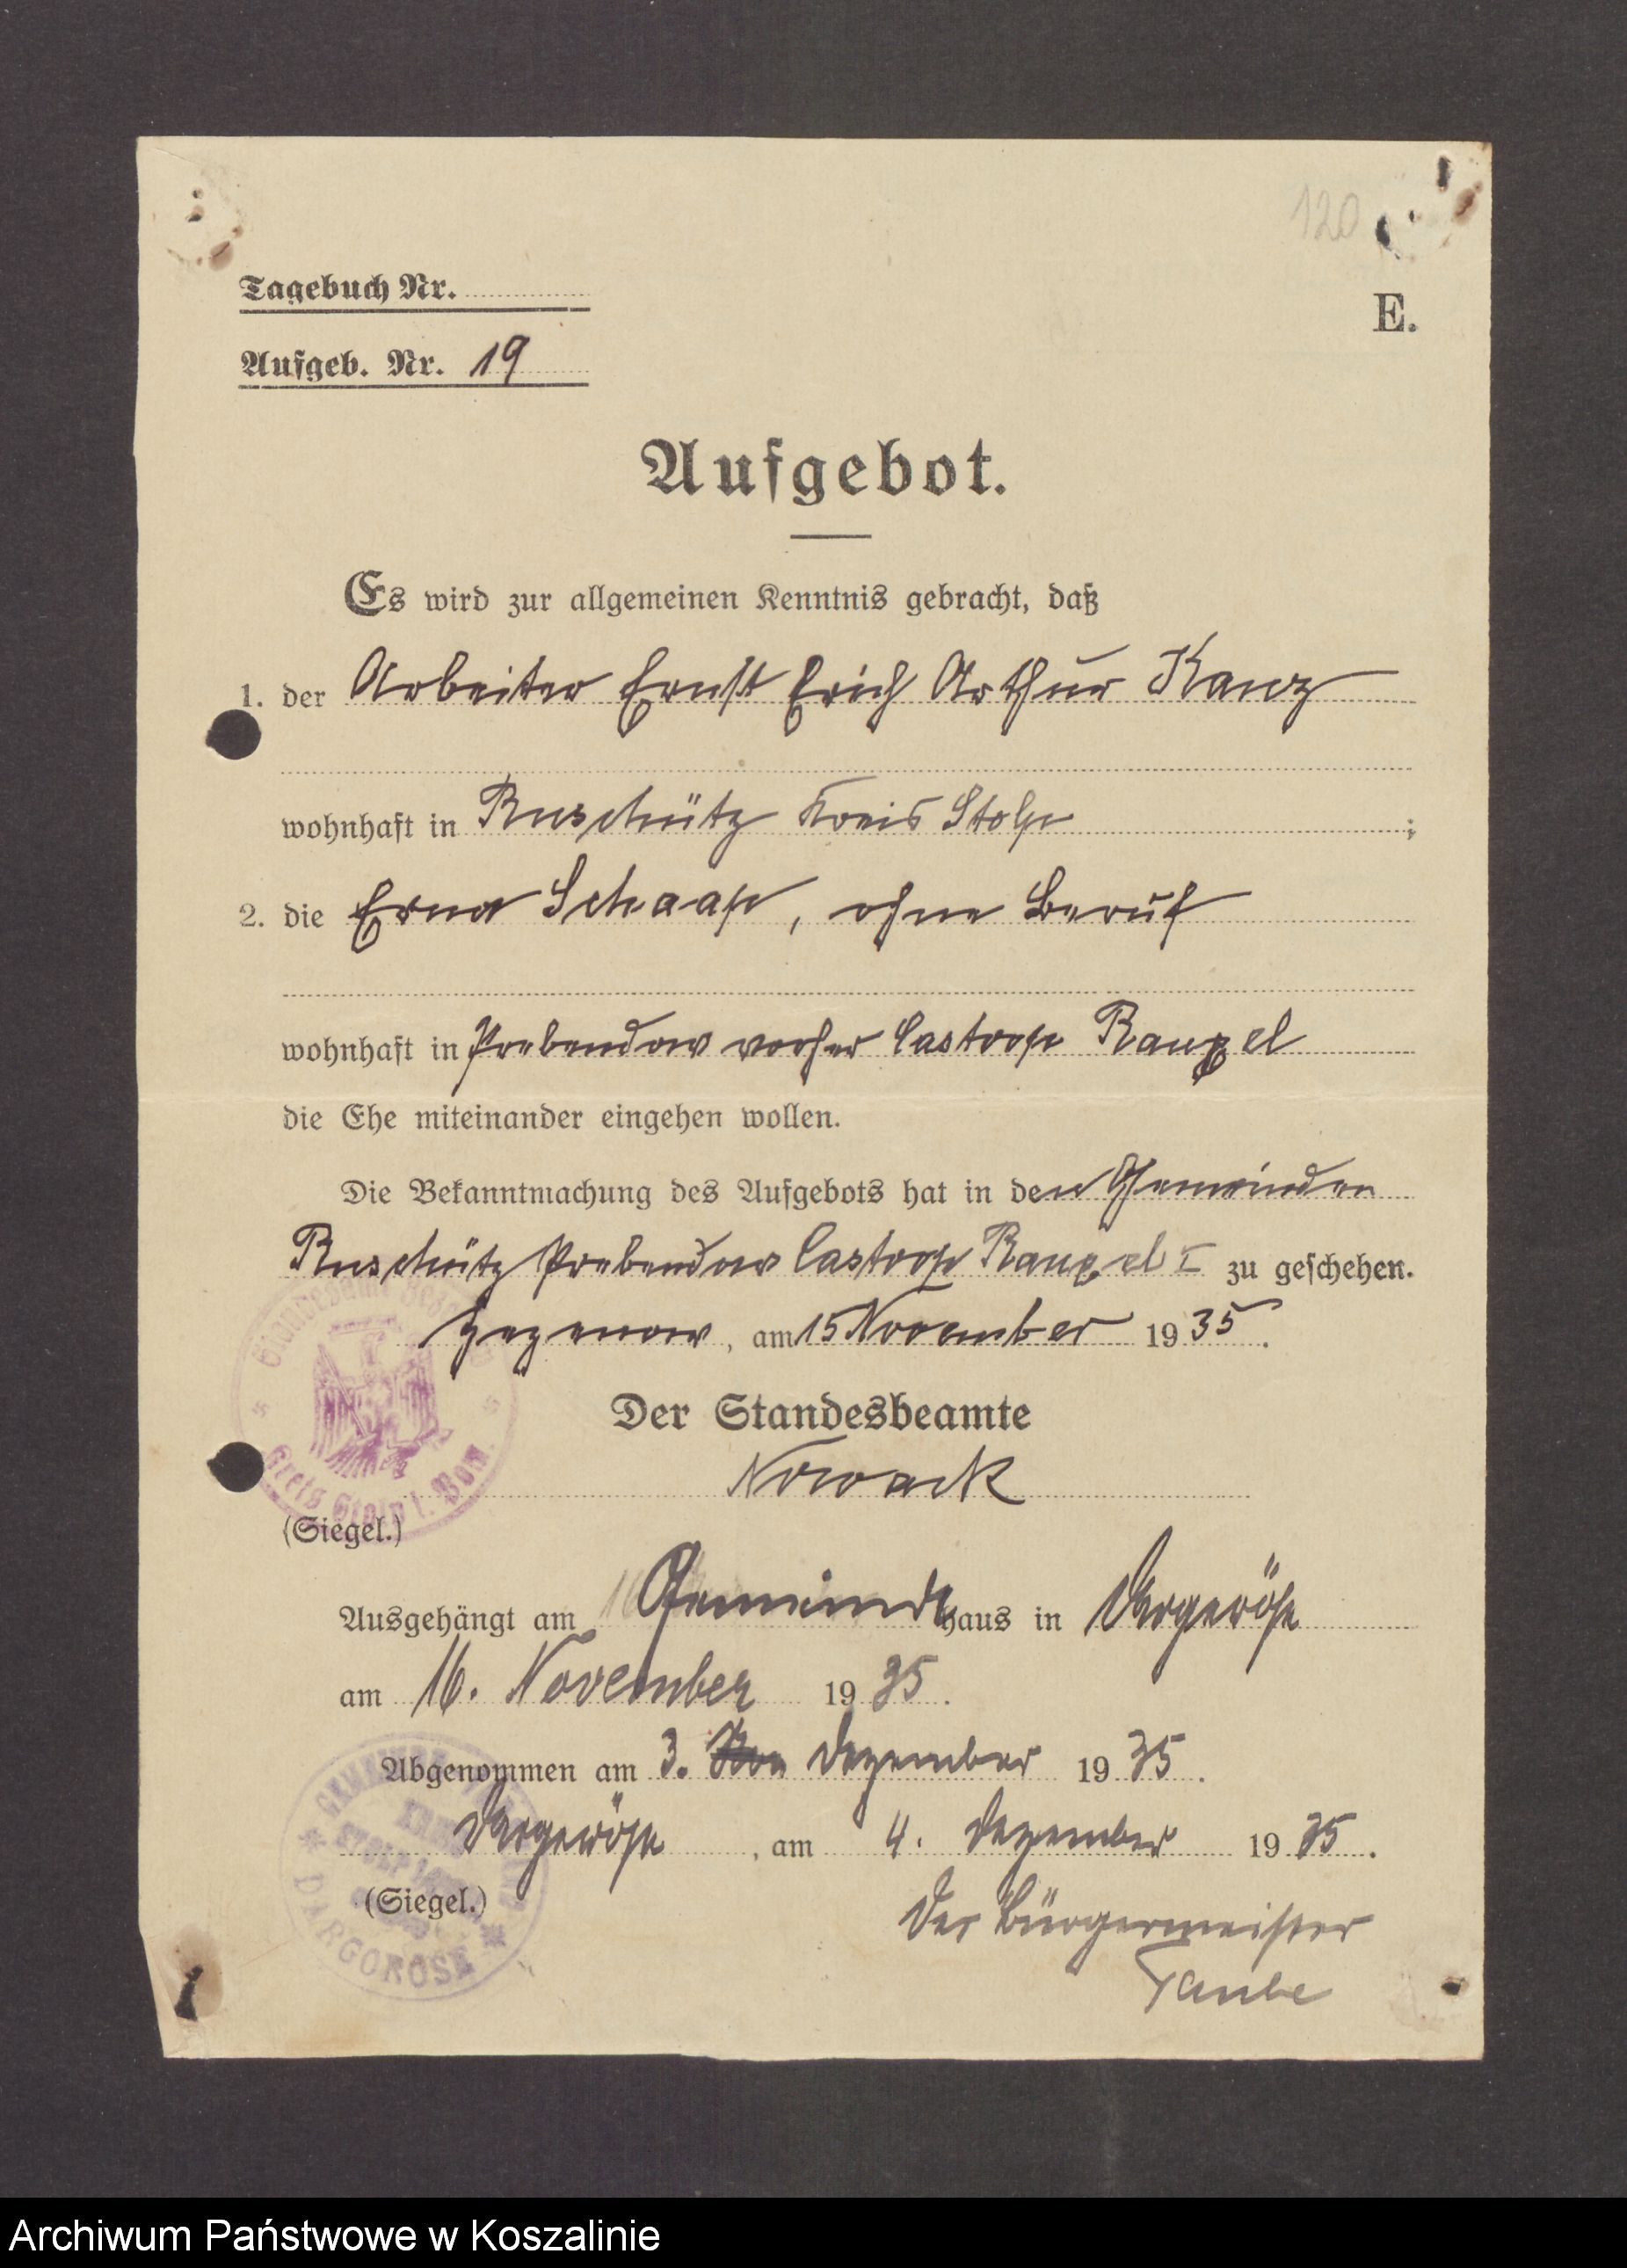 120
Tagebuch Nr.
E.
Aufgeb. Nr. 19
Aufgebot.
Es wird zur allgemeinen Kenntnis gebracht, daß
1. der Arbeiter Ernst Erich Arthur Kanz
wohnhaft in Ruschütz Kreis Stolp ;
2. die Erna Schaap, ohne Beruf
wohnhaft in Prebendow vorher Castrop Rauxel
die Ehe miteinander eingehen wollen.
Die Bekanntmachung des Aufgebots hat in den Gemeinden
Ruschütz Prebendow Castrop Rauxel I zu geschehen.
Zezenow, am 15 November 1935.
Der Standesbeamte
Nowack
Kreis Stolp i. Pom.
(Siegel.)
Ausgehängt am Gemeindehaus in Dargeröse
am 16. November 1935.
Abgenommen am 3. Dezember 1935.
Dargeröse, am 4. Dezember 1935.
(Siegel.)
DARGORÖSE
Der Bürgermeister
Taube
Archiwum Państwowe w Koszalinie